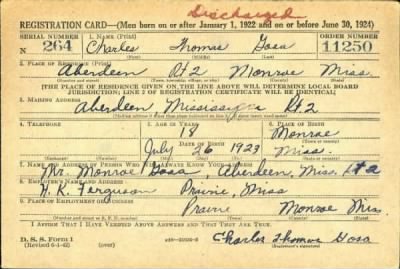 Discharged
REGISTRATION CARD—(Men born on or after January 1, 1922 and on or before June 30, 1924)
SERIAL NUMBER 1. NAME (Print) ORDER NUMBER
N 264 Charles Thomas Goza 11250
2. PLACE OF RESIDENCE (Print)
Aberdeen Rt 2 Monroe Miss.
[THE PLACE OF RESIDENCE GIVEN ON THE LINE ABOVE WILL DETERMINE LOCAL BOARD
JURISDICTION; LINE 2 OF REGISTRATION CERTIFICATE WILL BE IDENTICAL]
3. MAILING ADDRESS
Aberdeen, Mississippi Rt 2
4. TELEPHONE 5. AGE IN YEARS 6. PLACE OF BIRTH
18 Monroe
DATE OF BIRTH
July 26 1923 Miss.
7. NAME AND ADDRESS OF PERSON WHO WILL ALWAYS KNOW YOUR ADDRESS
Mr. Monroe Goza, Aberdeen, Miss. Rt 2
8. EMPLOYER'S NAME AND ADDRESS
H. K. Ferguson Prairie, Miss
9. PLACE OF EMPLOYMENT OR BUSINESS
Prairie Monroe Miss.
I AFFIRM THAT I HAVE VERIFIED ABOVE ANSWERS AND THAT THEY ARE TRUE.
D. S. S. Form 1
(Revised 6-1-42) (over) Charles Thomas Goza